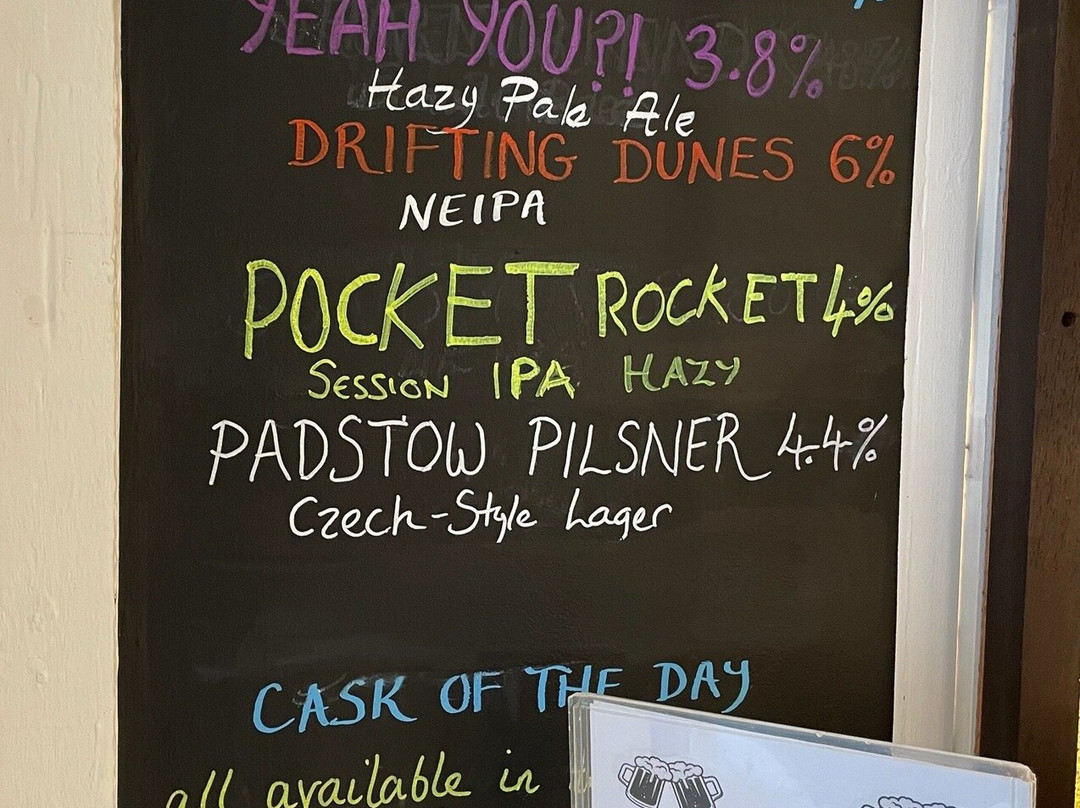 YEAH YOU?! 3.8%
Hazy Pale Ale
DRIFTING DUNES 6%
NEIPA
POCKET ROCKET 4%
SESSION IPA HAZY
PADSTOW PILSNER 4.4%
Czech-Style Lager
CASK OF THE DAY
all available in